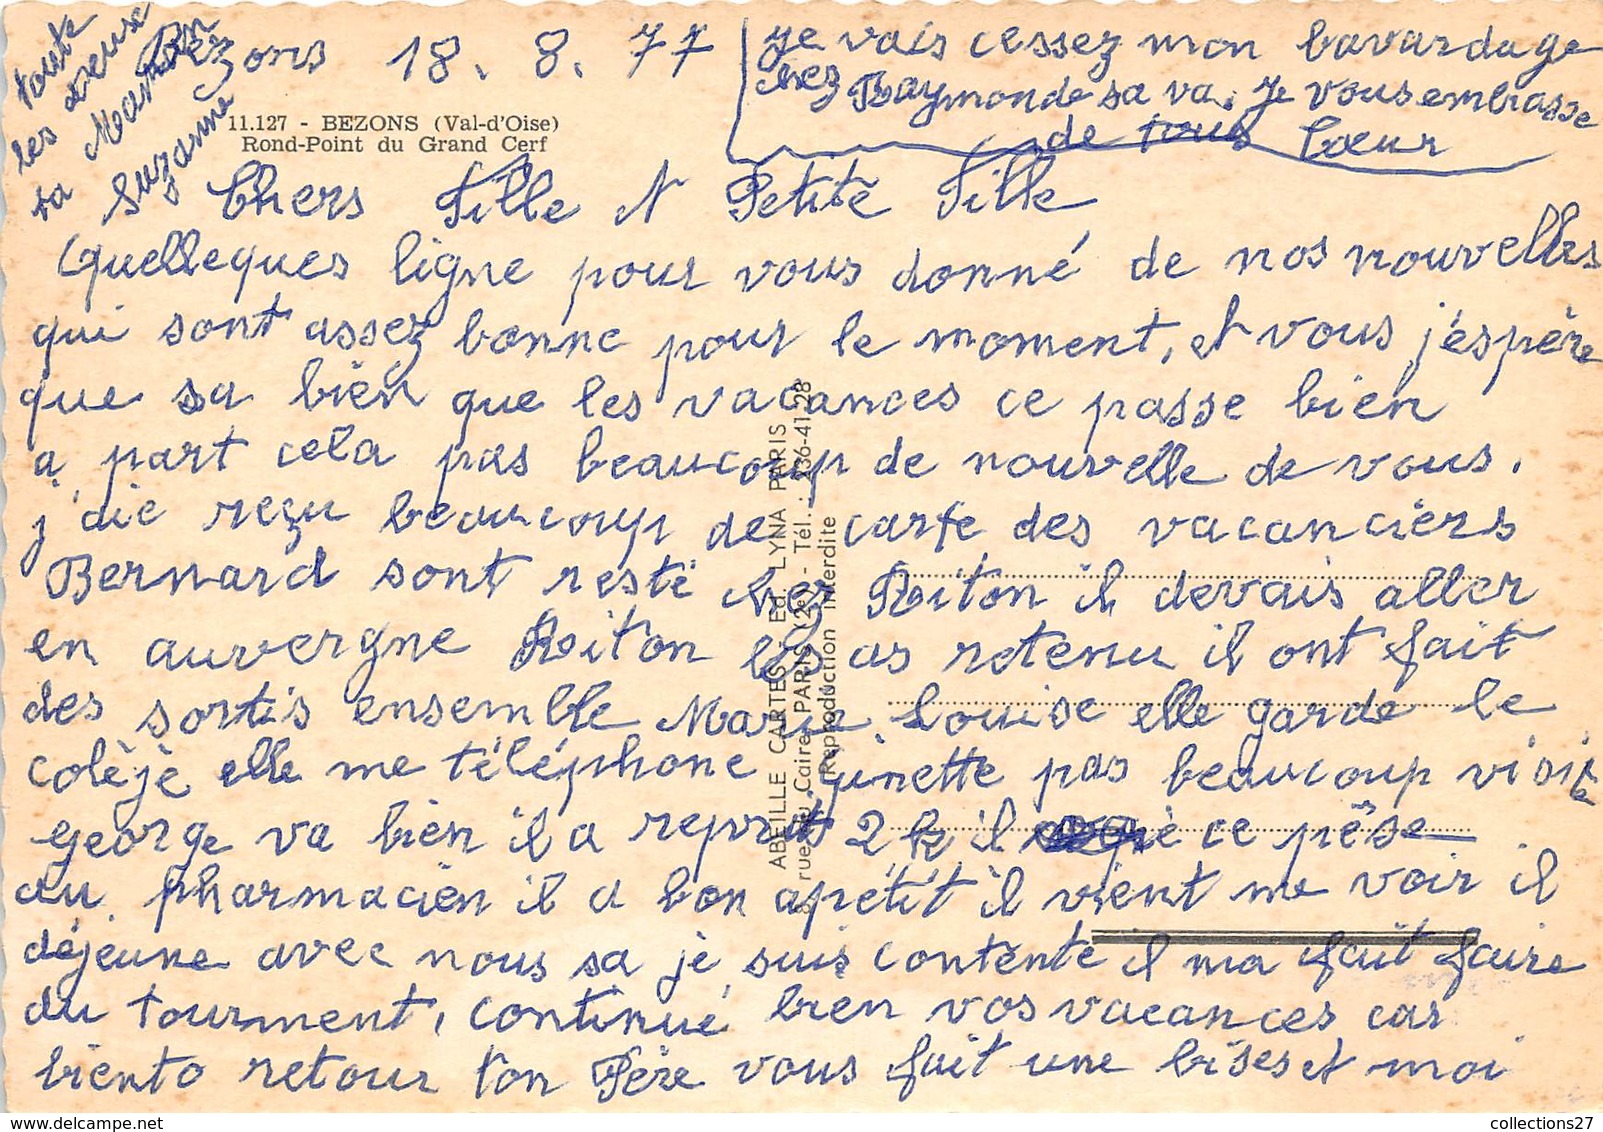 Bezons 18. 8. 77
11.127 - BEZONS (Val-d'Oise)
Rond-Point du Grand Cerf
Chers Fille et Petite Fille
Quelleques ligne pour vous donné de nos nouvelles
qui sont assez bonne pour le moment, et vous j'espère
que sa bien que les vacances ce passe bien
a part cela pas beaucoup de nouvelle de vous.
j'aie reçu beaucoup de carte des vacanciers
Bernard sont resté chez Riton il devais aller
en auvergne Riton les as retenu il ont fait
des sortis ensemble Marie Louise elle garde le
colèje elle me téléphone Ginette pas beaucoup visite
George va bien il a reprit 2 k il ce pèse
au pharmacien il a bon apétit il vient me voir il
déjeune avec nous sa je suis contente il ma fait faire
du tourment, continué bien vos vacances car
biento retour ton Père vous fait une bises et moi
je vais cessez mon bavardage
chez Raymonde sa va. Je vous embrasse
de tous Cœur
toute
les deuse
ta Maman
Suzanne
ABEILLE CARTES Ed. LYNA PARIS
8, rue du Caire PARIS (2e) - Tél. : 236-41-28
Reproduction interdite
collections27